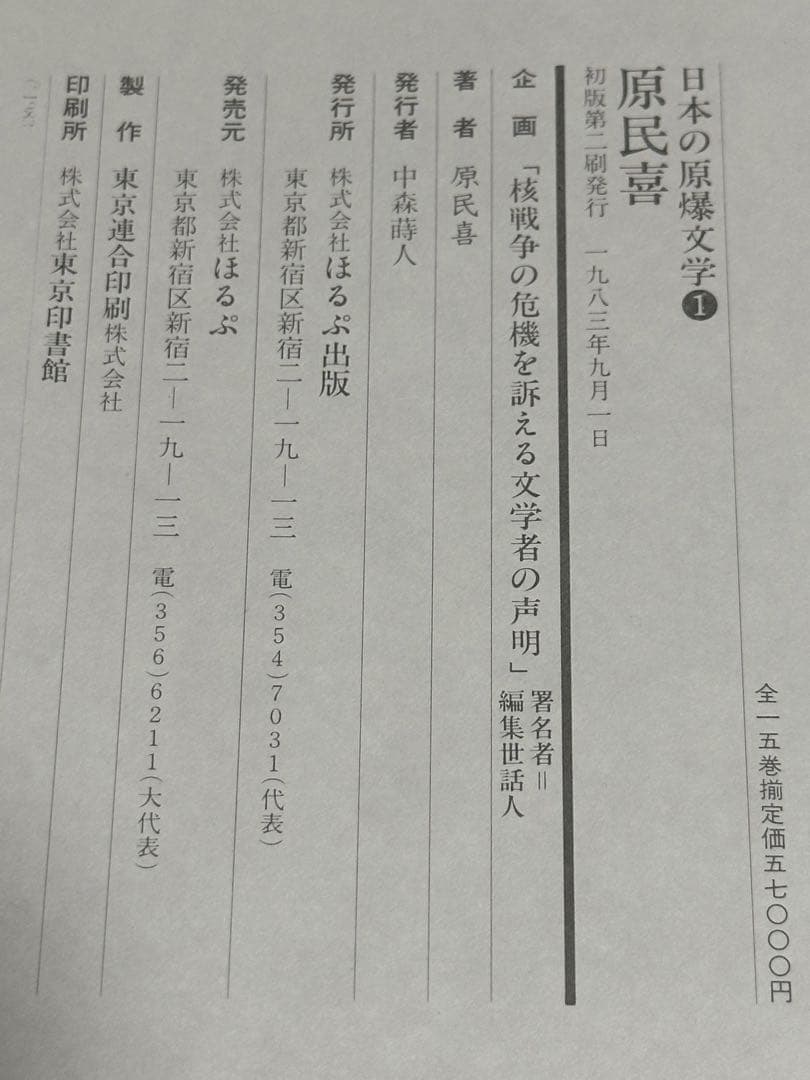 全一五巻揃定価五七〇〇〇円
日本の原爆文学❶
原民喜
初版第二刷発行 一九八三年九月一日
企画 「核戦争の危機を訴える文学者の声明」 署名者＝
編集世話人
著者 原民喜
発行者 中森蒔人
発行所 株式会社ほるぷ出版
東京都新宿区新宿二―一九―一三 電(354)7031(代表)
発売元 株式会社ほるぷ
東京都新宿区新宿二―一九―一三 電(356)6211(大代表)
製作 東京連合印刷株式会社
印刷所 株式会社東京印書館